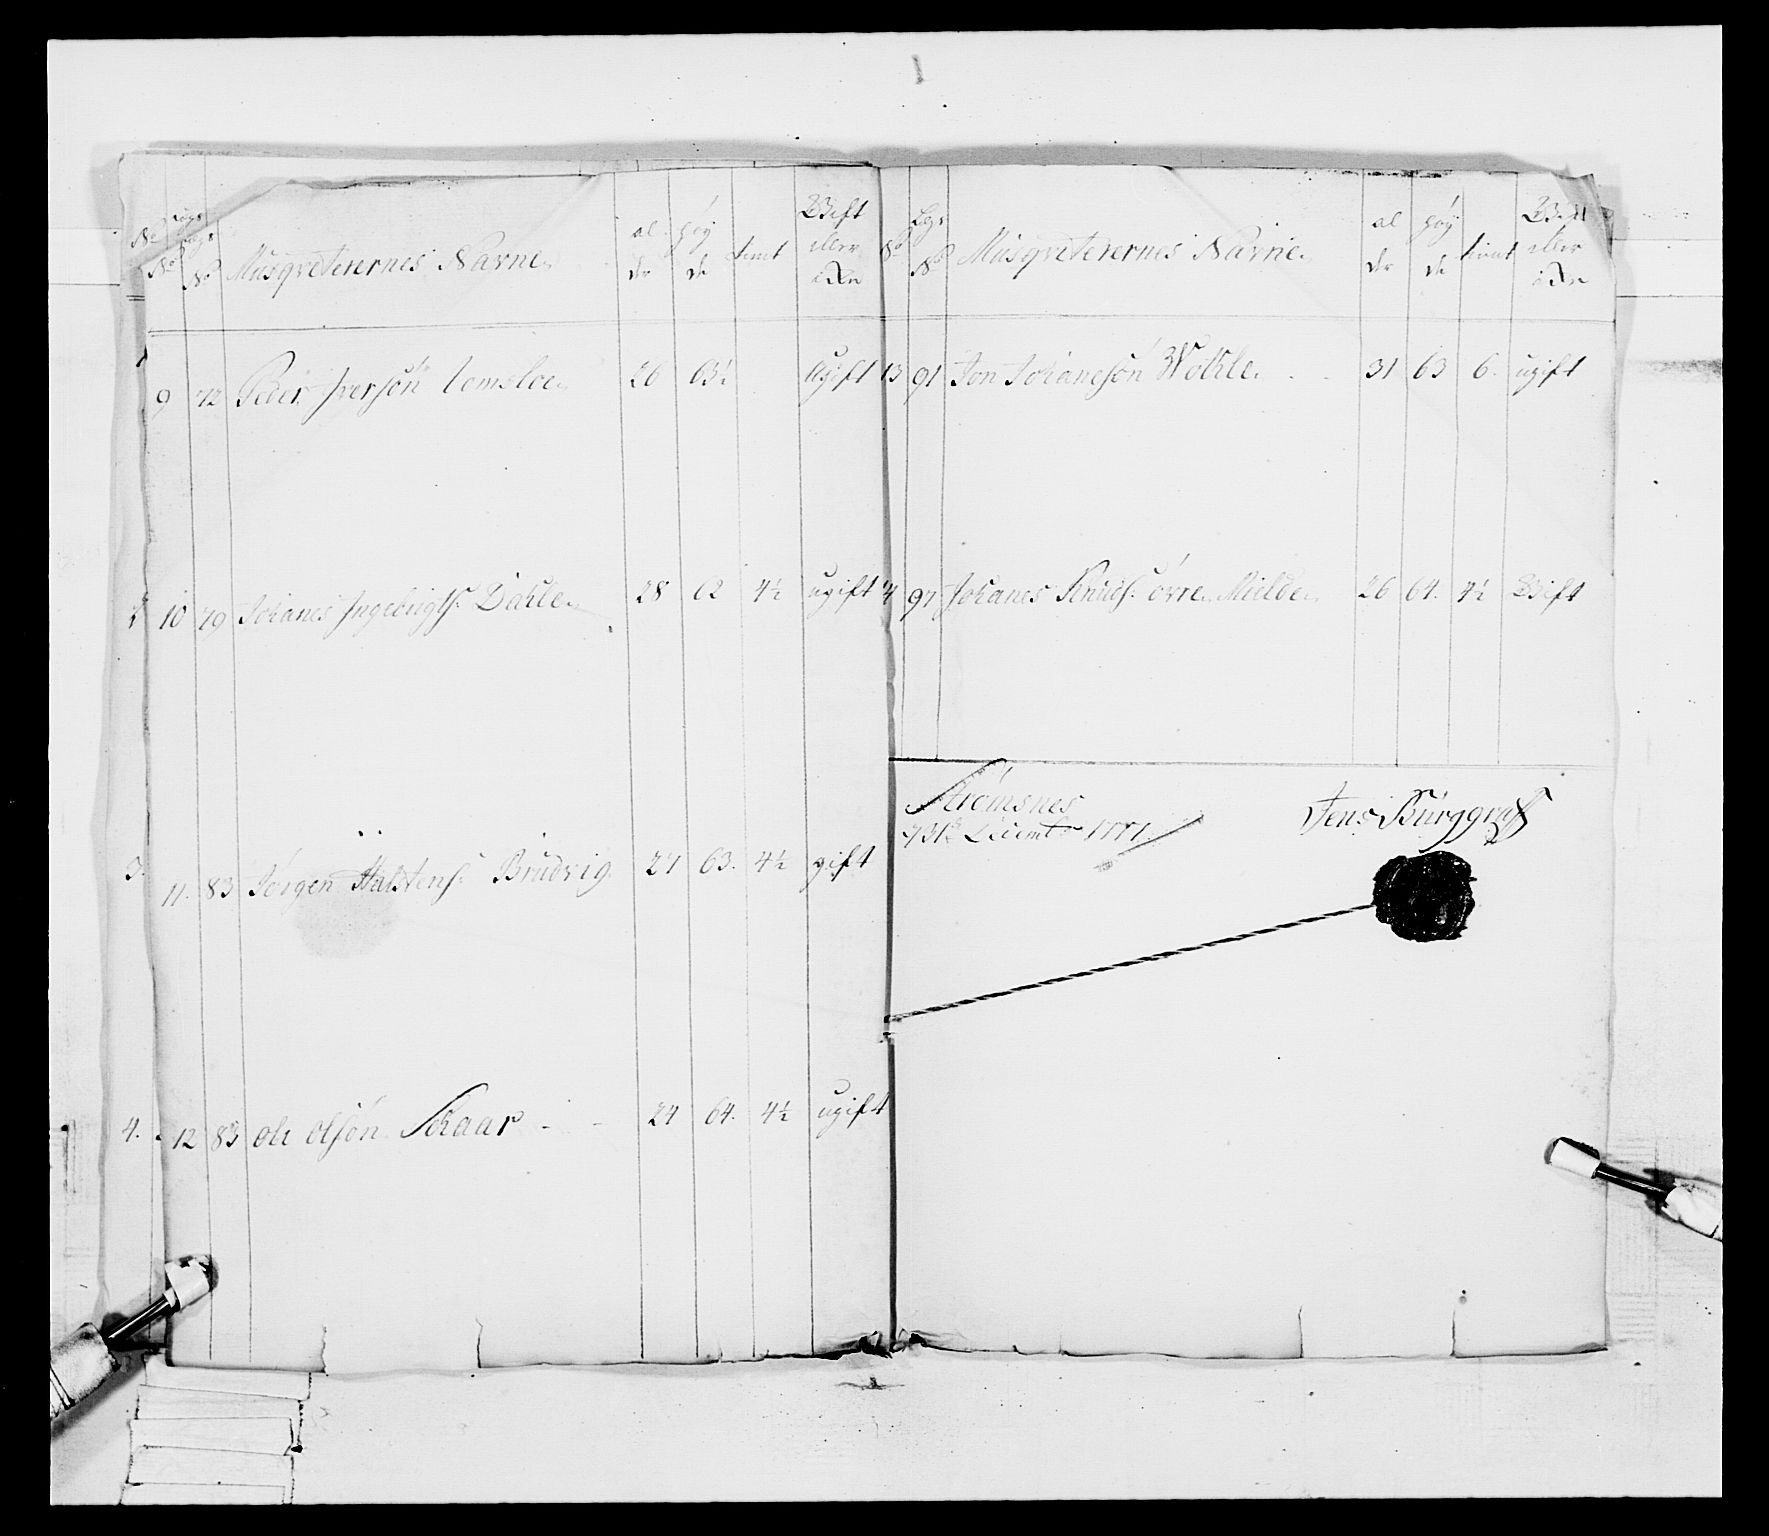 No Legs No Musqveterernes Navne al der höy de timt Gift eller ickn
9 72 Peder Iversön 26 63½ Ugift
10 79 Johanes Ingebrigts: Dahle 28 62 4½ ugift
11. 83 Jörgen Halstens: Brudvig 27 63. 4½ gift
12 83 ole olsön Skaar - - 24 64. 4½ ugift
2
3.
4.
No Legs No Musqveterernes Navne al der höy de timt Gift eller ickn
13 91 Jon Johanesön - - 31 63 6. ugift
14 97 Johanes Knuds: övre Mielde 26 64. 4½ Gift
Strömsnes
d 31te Decembr 1771
Jens Bürggraff